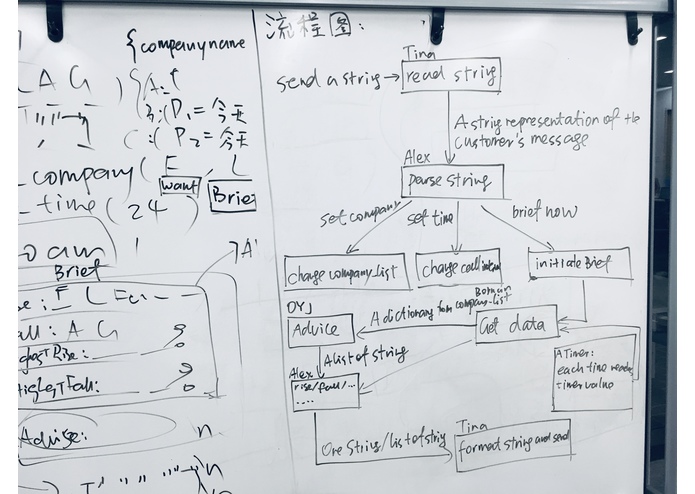 {company name
流程图:
Tina
send a string → read string
A string representation of the
customer's message
Alex
parse string
set company
set time
brief now
change company_list
change call interval
initiate Brief
Boman
A dictionary from company-list
Get data
OYJ
Advice
A list of string
Alex
rise/fall/...
....
A Timer:
each time reaches
timer value
One String/list of string
Tina
format string and send
A:
B:(P₁=今天
C:(P₂=今天
_company(E, L
want
Brief
_time(24)
Brief
A G
Rise:
Fall:
Advise: